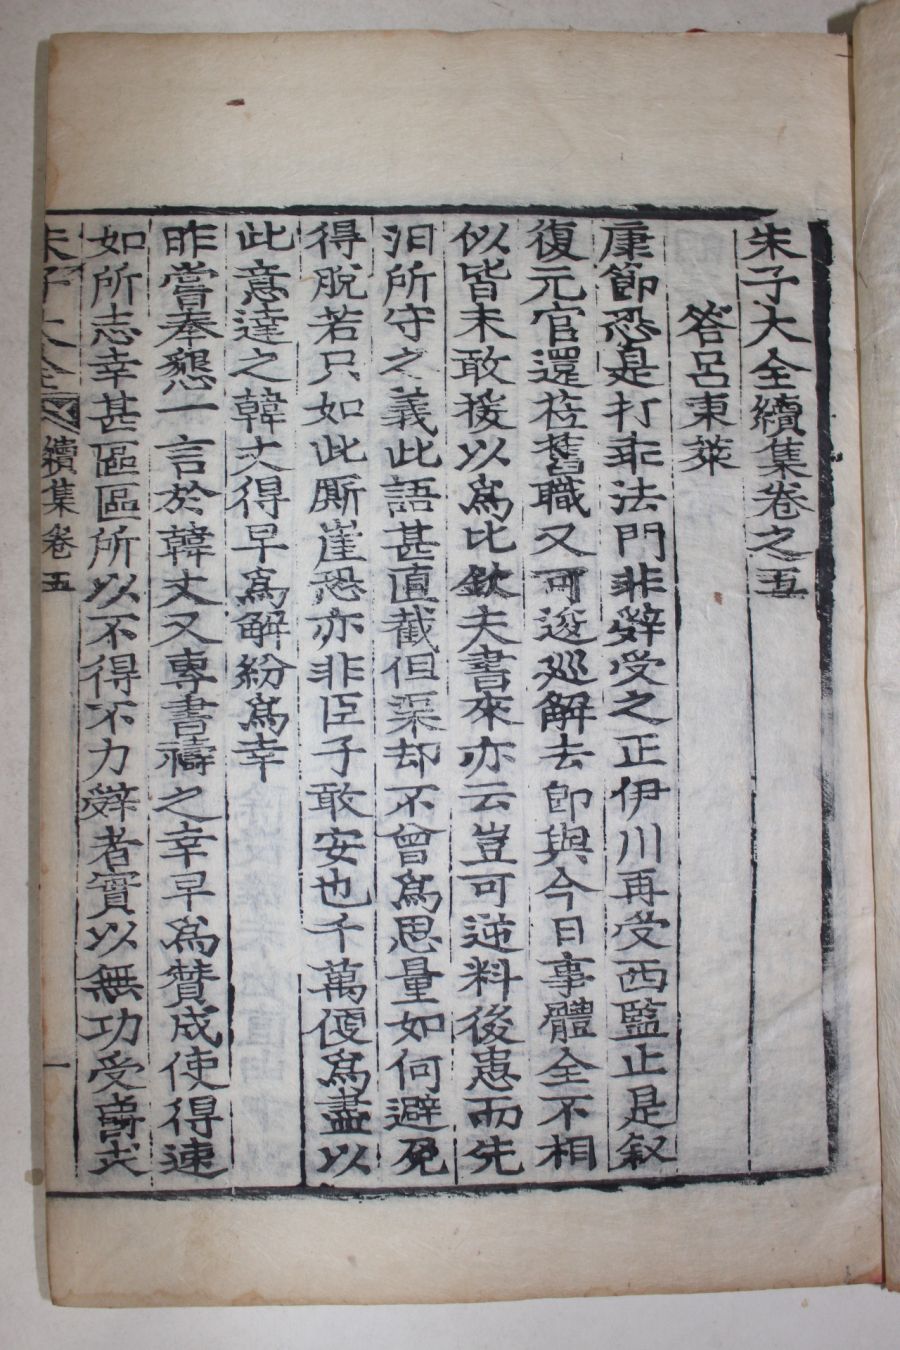 朱子大全續集卷之五
答呂東萊
康節恐是打乖法門非辭受之正伊川再受西監止是叙
復元官還莅舊職又可逡廵解去卽與今日事體全不相
似皆未敢援以爲比欽夫書來亦云豈可逆料後患而先
汨所守之義此語甚直截但渠却不曾爲思量如何避免
得脫若只如此厮崖恐亦非臣子敢安也千萬便爲盡以
此意達之韓丈得早爲解紛爲幸
昨嘗奉懇一言於韓丈又專書禱之幸早爲贊成使得速
如所志幸甚區區所以不得不力辭者實以無功受賞
朱子大全 續集卷五 一